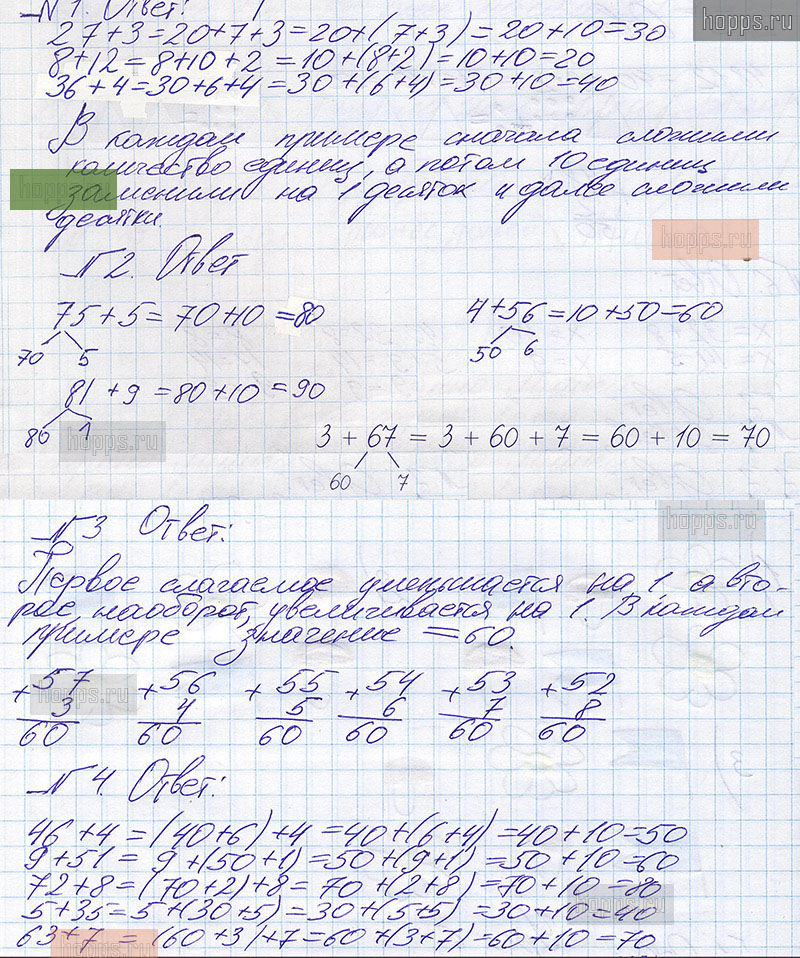 hopps.ru
№ 1. Ответ:
27+3=20+7+3=20+(7+3)=20+10=30
8+12=8+10+2=10+(8+2)=10+10=20
36+4=30+6+4=30+(6+4)=30+10=40
В каждом примере сначала сложили
количество единиц, а потом 10 единиц
hopps.ru
заменили на 1 десяток и далее сложили
десятки.
hopps.ru
№ 2. Ответ
75+5=70+10=80 4+56=10+50=60
70 5 50 6
81+9=80+10=90
80 1
hopps.ru
3 + 67 = 3 + 60 + 7 = 60 + 10 = 70
60 7
hopps.ru
№ 3 Ответ:
Первое слагаемое уменьшается на 1, а вто-
рое, наоборот, увеличивается на 1. В каждом
примере значение =60.
hopps.ru
+57 +56 +55 +54 +53 +52
3 4 5 6 7 8
60 60 60 60 60 60
№ 4. Ответ:
46+4=(40+6)+4=40+(6+4)=40+10=50
9+51=9+(50+1)=50+(9+1)=50+10=60
72+8=(70+2)+8=70+(2+8)=70+10=80
5+35=5+(30+5)=30+(5+5)=30+10=40
hopps.ru
63+7=(60+3)+7=60+(3+7)=60+10=70
hopps.ru